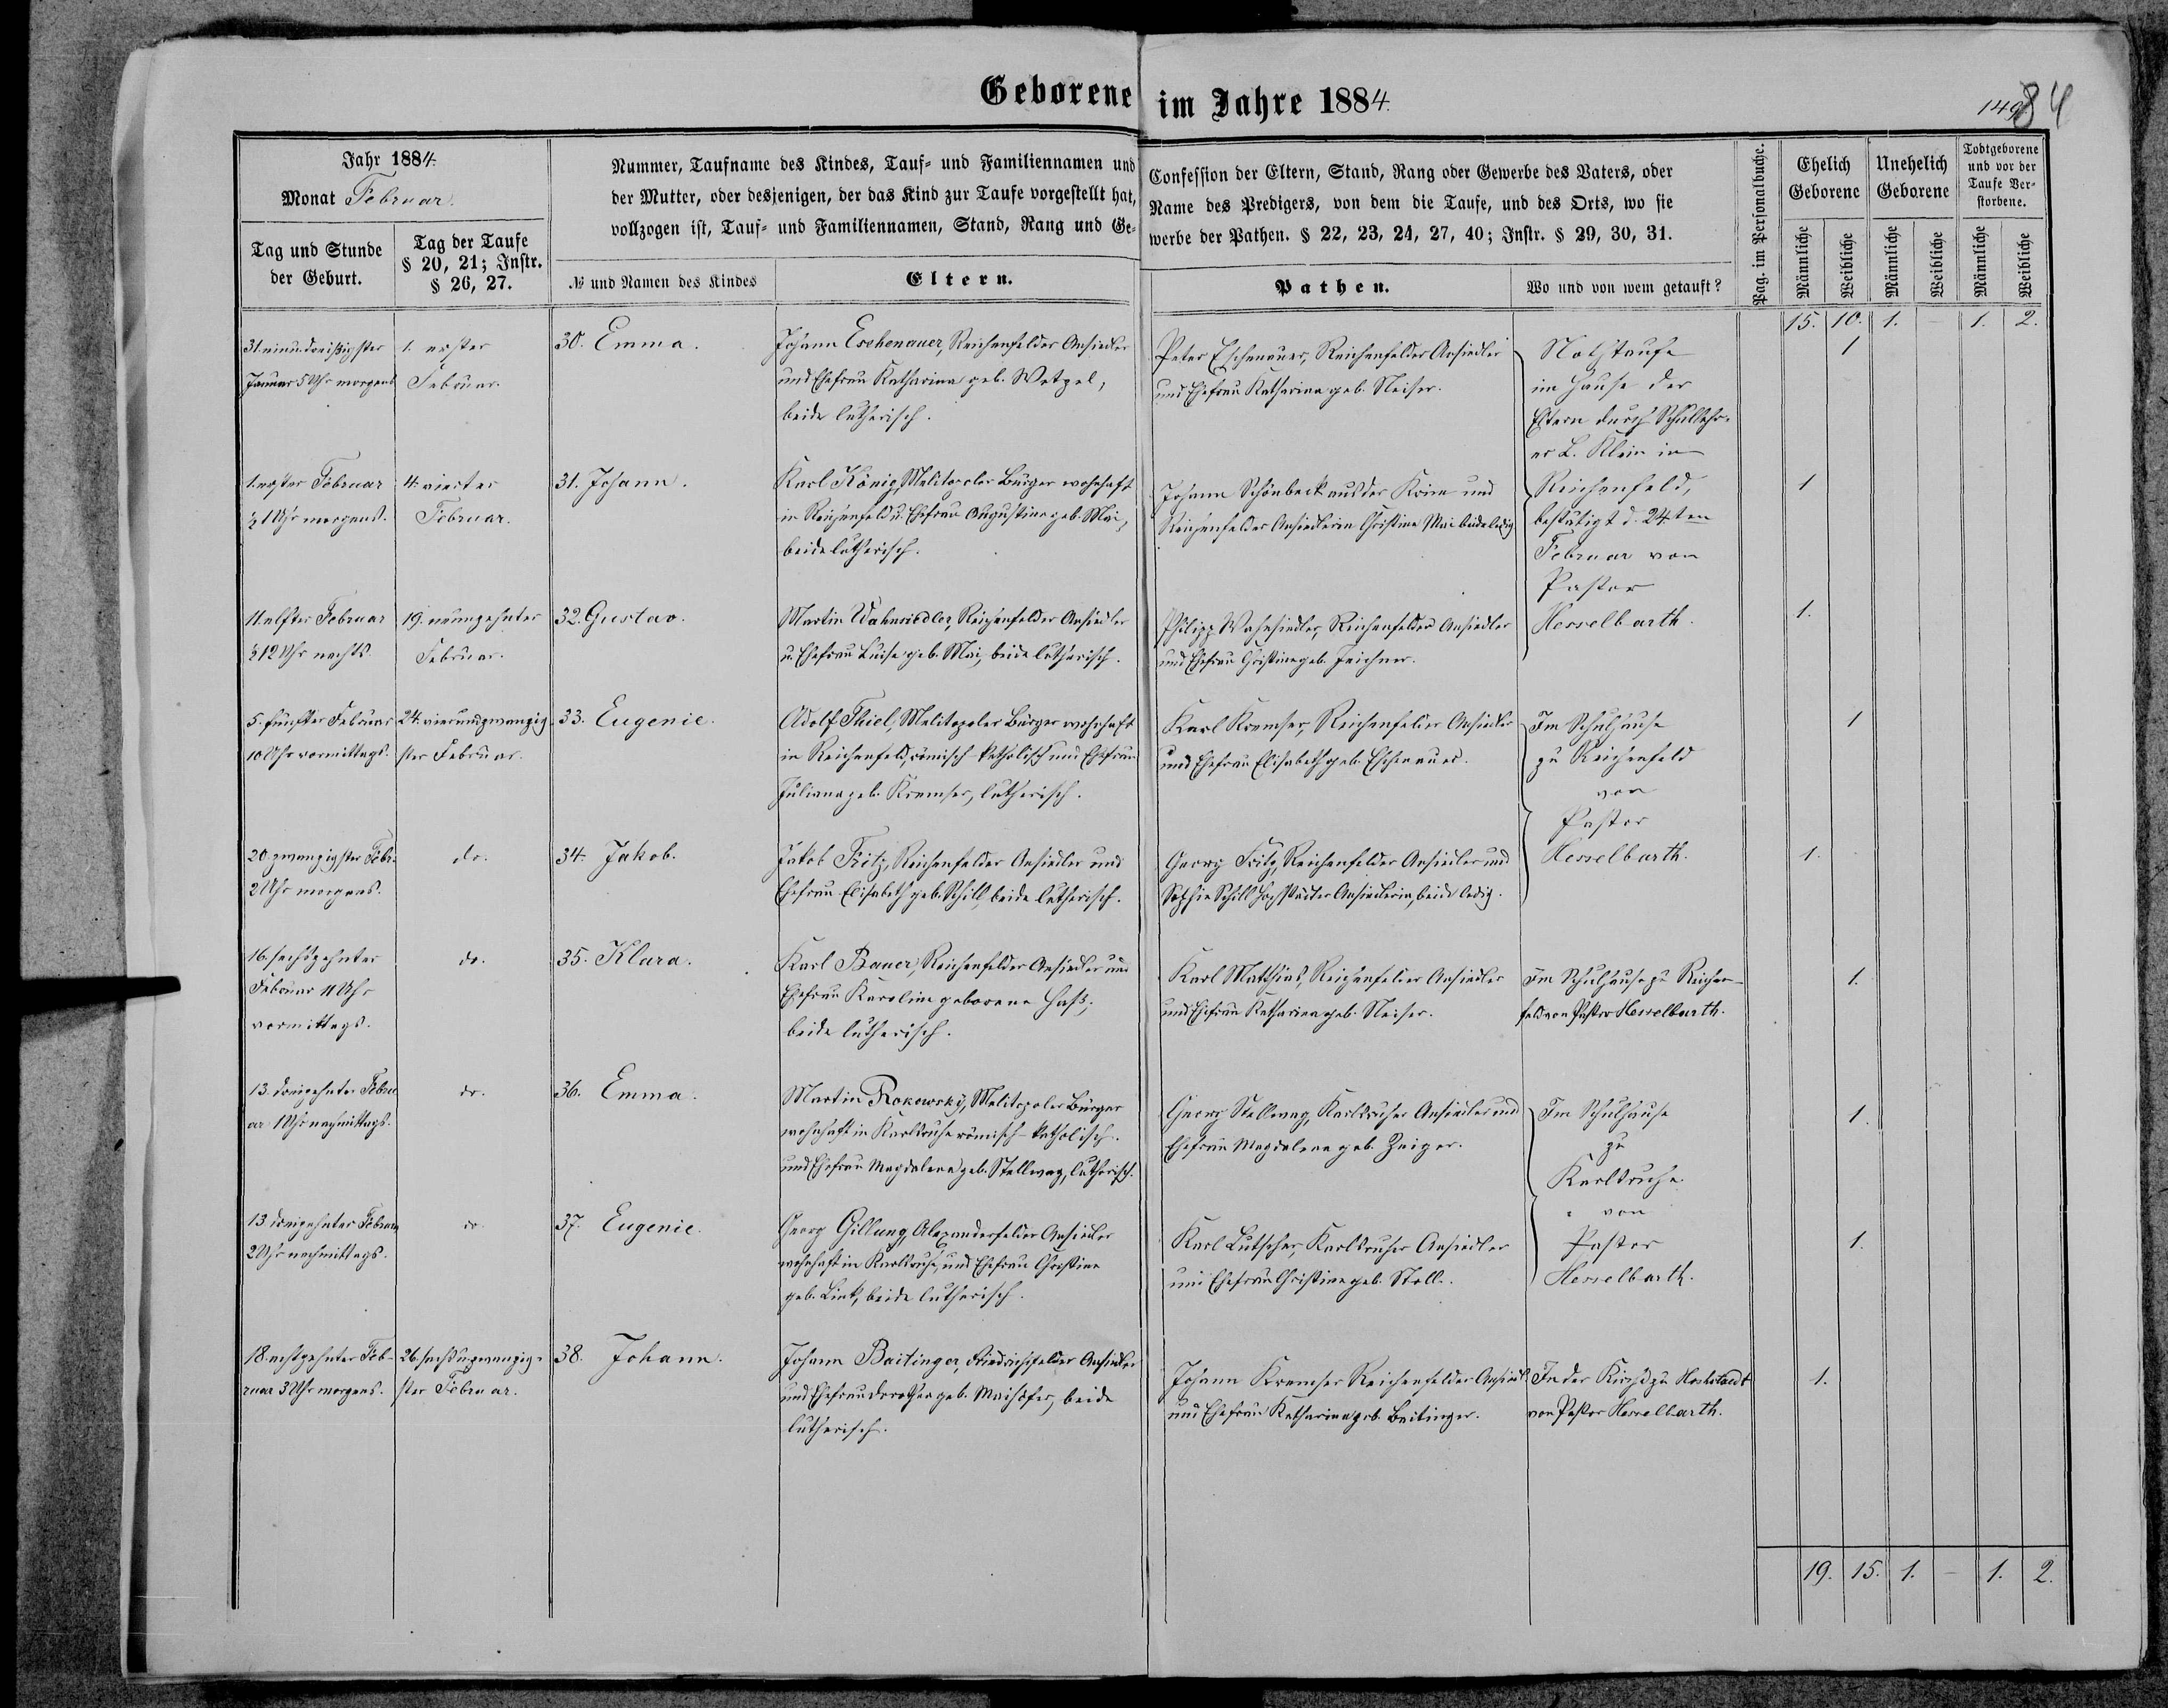 Geborene im Jahre 1884.
149
84
Jahr 1884.
Monat Februar.
Nummer, Taufname des Kindes, Tauf- und Familiennamen und
der Mutter, oder desjenigen, der das Kind zur Taufe vorgestellt hat,
vollzogen ist, Tauf- und Familiennamen, Stand, Rang und Ge-
Confession der Eltern, Stand, Rang oder Gewerbe des Vaters, oder
Name des Predigers, von dem die Taufe, und des Orts, wo sie
werbe der Pathen. § 22, 23, 24, 27, 40; Instr. § 29, 30, 31.
Pag. im Personalbuche.
Ehelich
Geborene
Unehelich
Geborene
Todtgeborene
und vor der
Taufe Ver-
storbene.
Tag und Stunde
der Geburt.
Tag der Taufe
§ 20, 21; Instr.
§ 26, 27.
№ und Namen des Kindes
Eltern.
Pathen.
Wo und von wem getauft?
Männliche
Weibliche
Männliche
Weibliche
Männliche
Weibliche
15. 10. 1. – 1. 2.
31. einu. dreißigster
Januar 5 Uhr morgens
1. erster
Februar.
30. Emma.
Johann Eschenauer, Reichenfelder Ansiedler
und Ehefrau Katharina geb. Wetzel,
beide lutherisch.
Peter Eschenauer, Reichenfelder Ansiedler
und Ehefrau Katharina geb. Neiser.
Nothtaufe
im Hause der
Eltern durch Schulleh-
rer L. Klein in
Reichenfeld,
bestätigt d. 24ten
Februar von
Pastor
Hesselbarth.
1
1. erster Februar
½ 1 Uhr morgens.
4. vierter
Februar.
31. Johann.
Karl König, Melitopoler Bürger wohnhaft
in Reichenfeld u. Ehefrau Augustine geb. Mai,
beide lutherisch.
Johann Schönbeck aus der Krim und
Reichenfelder Ansiedlerin Christina Mai beide ledig
1
11. elfter Februar
½ 12 Uhr nachts.
19. neunzehnter
Februar.
32. Gustav.
Martin Wahnsiedler, Reichenfelder Ansiedler
u. Ehefrau Luise geb. Mai, beide lutherisch.
Philipp Wahnsiedler, Reichenfelder Ansiedler
und Ehefrau Christine geb. Zeichner.
1.
5. fünfter Februar
10 Uhr vormittags.
24. vierundzwanzig-
ster Februar.
33. Eugenie.
Adolf Thiel, Melitopoler Bürger wohnhaft
in Reichenfeld, römisch-katholisch und Ehefrau
Juliana geb. Kremser, lutherisch.
Karl Kremser, Reichenfelder Ansiedler
und Ehefrau Elisabeth geb. Eschenauer.
Im Schulhause
zu Reichenfeld
von
Pastor
Hesselbarth.
1
20. zwanzigster Febr.
2 Uhr morgens.
do.
34. Jakob.
Jakob Fritz, Reichenfelder Ansiedler und
Ehefrau Elisabeth geb. Schill, beide lutherisch.
Georg Fritz, Reichenfelder Ansiedler und
Sophie Schill Hochstädter Ansiedlerin, beide ledig.
1.
16. sechszehnter
Februar 11 Uhr
vormittags.
do.
35. Klara.
Karl Bauer, Reichenfelder Ansiedler und
Ehefrau Karoline geborene Haß,
beide lutherisch.
Karl Matthias, Reichenfelder Ansiedler
und Ehefrau Katharina geb. Neiser.
Im Schulhause zu Reichen-
feld von Pastor Hesselbarth.
1.
13. dreizehnter Febru-
ar 1 Uhr nachmittags.
do.
36. Emma.
Martin Rokowsky, Melitopoler Bürger
wohnhaft in Karlsruhe römisch-katholisch.
und Ehefrau Magdalena geb. Stellwag, lutherisch.
Georg Stellwag, Karlsruher Ansiedler und
Ehefrau Magdalena geb. Zeiger.
Im Schulhause
zu
Karlsruhe
von
Pastor
Hesselbarth.
1.
13. dreizehnter Februar
2 Uhr nachmittags.
do.
37. Eugenie.
Georg Gillung, Alexanderfelder Ansiedler
wohnhaft in Karlsruhe, und Ehefrau Christine
geb. Link, beide lutherisch.
Karl Lutscher, Karlsruher Ansiedler
und Ehefrau Christine geb. Stoll.
1.
18. achtzehnter Feb-
ruar 3 Uhr morgens.
26. sechsu. zwanzig-
ster Februar.
38. Johann.
Johann Baitinger, Friedrichsfelder Ansiedler
und Ehefrau Dorothea geb. Maihofer, beide
lutherisch.
Johann Kremser Reichenfelder Ansiedl.
und Ehefrau Katharina geb. Beitinger.
In der Kirche zu Hochstaedt
von Pastor Hesselbarth.
1.
19. 15. 1. – 1. 2.